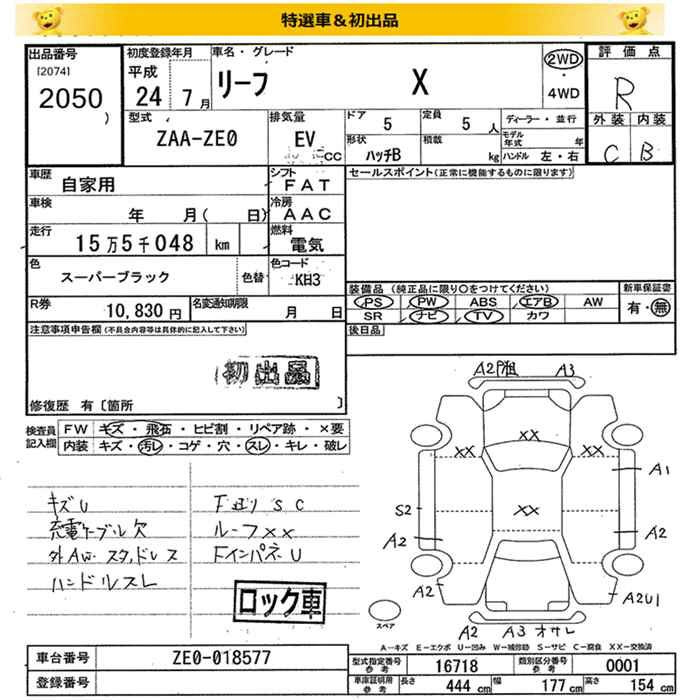 特選車＆初出品
出品番号 [2074] 2050 )
初度登録年月 平成 24 7月
車名・グレード リーフ X
2WD・4WD
評価点 R
外装 C 内装 B
型式 ZAA-ZE0
排気量 EV cc
ドア 5 定員 5 人
形状 ハッチB 積載 kg
ディーラー・並行
モデル年式 年
ハンドル 左・右
車歴 自家用
シフト FAT
セールスポイント(正常に機能するものに限ります)
車検 年 月( 日)
冷房 AAC
走行 15万5千048 km
燃料 電気
色 スーパーブラック 色替
色コード KH3
装備品 (純正品に限り○をつけてください)
新車保証書 有・無
PS PW ABS エアB AW
SR ナビ TV カワ
R券 10,830 円
名変通知期限 月 日
後日品
注意事項申告欄(不具合内容等は具体的に記入して下さい)
初出品
修復歴 有〔箇所 〕
検査員記入欄
FW キズ・飛石・ヒビ割・リペア跡・×要
内装 キズ・汚レ・コゲ・穴・スレ・キレ・破レ
キズU
充電ケーブル欠
外AW.スタッドレス
ハンドルスレ
F廻り SC
ルーフXX
FインパネU
ロック車
A2 A3
XX
XX XX
A1
S2 XX
A2 A2
A2 A2U1
A2 A3 オサレ
スペア
A－キズ E－エクボ U－凹み W－補修跡 S－サビ C－腐食 XX－交換済
車台番号 ZE0-018577
登録番号
型式指定番号参考 16718
類別区分番号参考 0001
車庫証明用参考 長さ 444 cm 幅 177 cm 高さ 154 cm